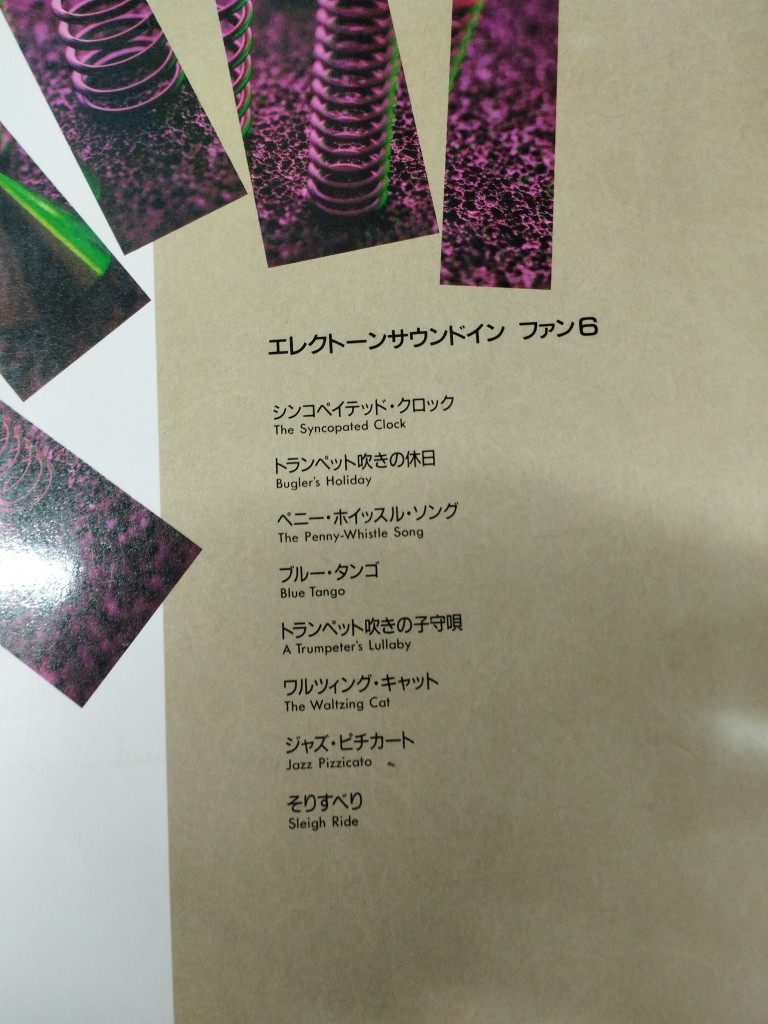 エレクトーンサウンドイン ファン6
シンコペイテッド・クロック
The Syncopated Clock
トランペット吹きの休日
Bugler's Holiday
ペニー・ホイッスル・ソング
The Penny-Whistle Song
ブルー・タンゴ
Blue Tango
トランペット吹きの子守唄
A Trumpeter's Lullaby
ワルツィング・キャット
The Waltzing Cat
ジャズ・ピチカート
Jazz Pizzicato
そりすべり
Sleigh Ride